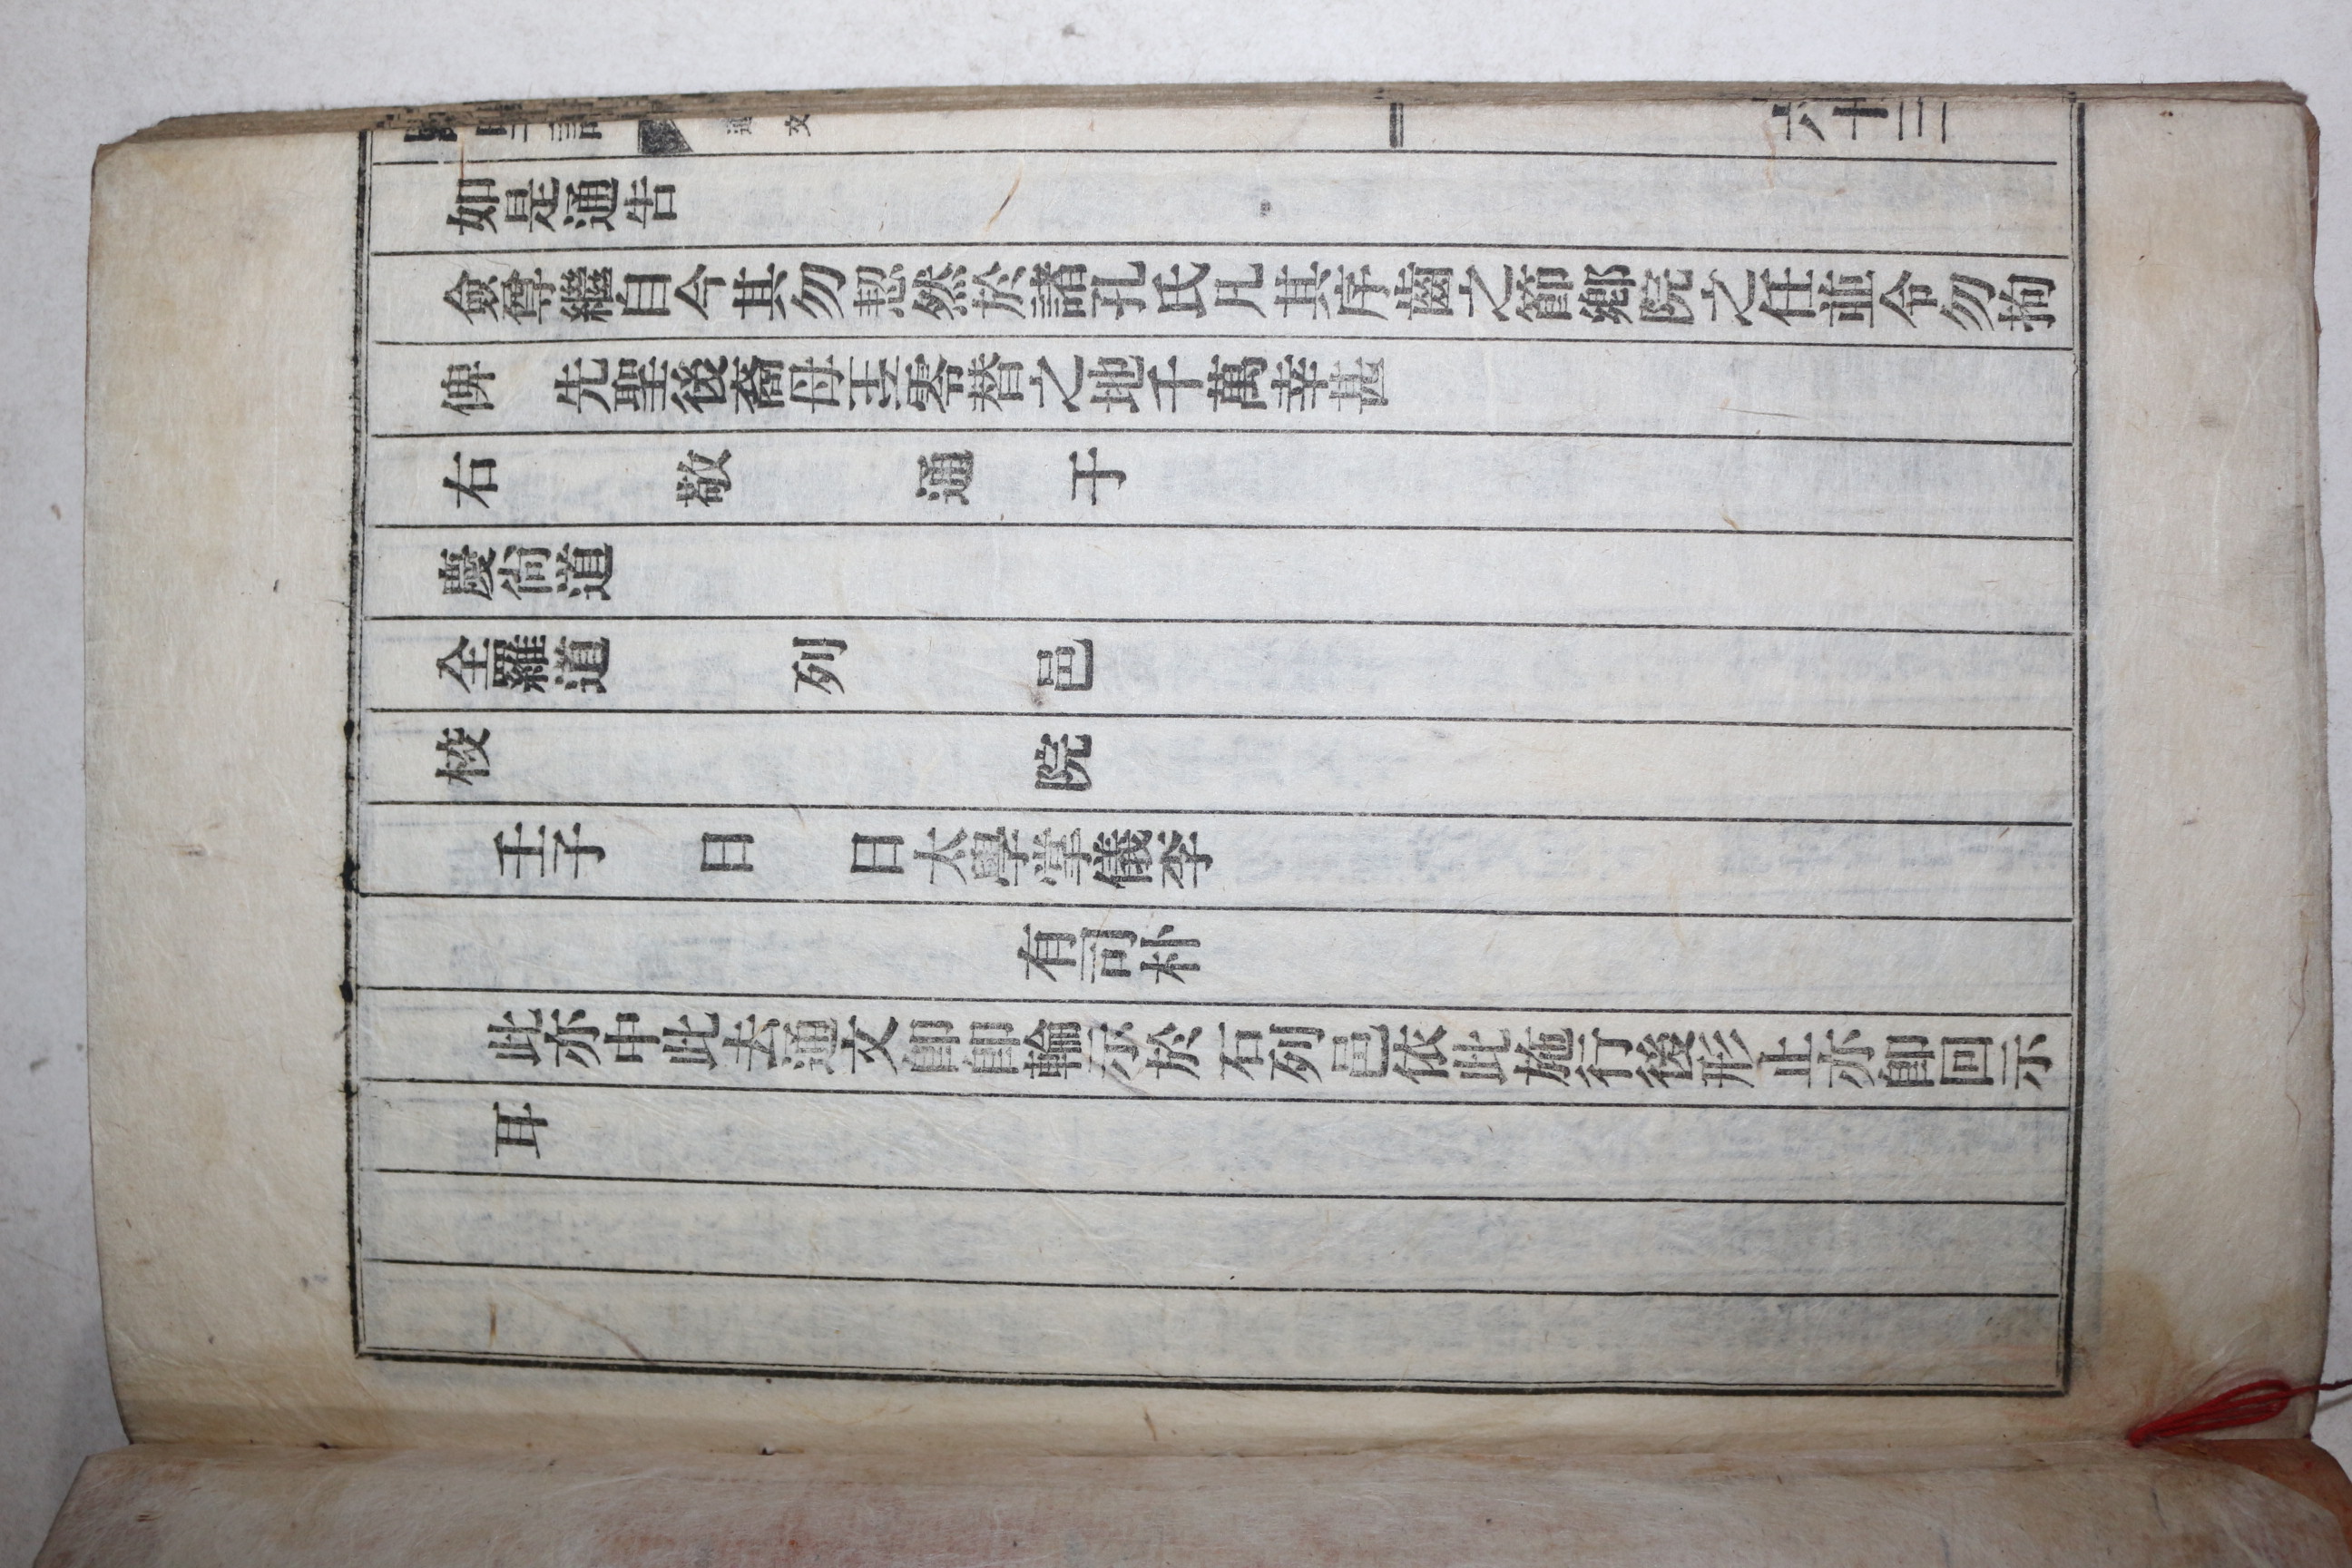 通文 六十三
如是通告
僉尊繼自今其勿恝然於諸孔氏凡其序齒之節鄕院之任並令勿拘
俾 先聖後裔毋至零替之地千萬幸甚
右 敬 通 于
慶尙道
全羅道 列 邑
校 院
壬子 日 日太學掌儀李
有司朴
此亦中此去通文卽卽輪示於右列邑依此施行後形止亦卽回示
耳